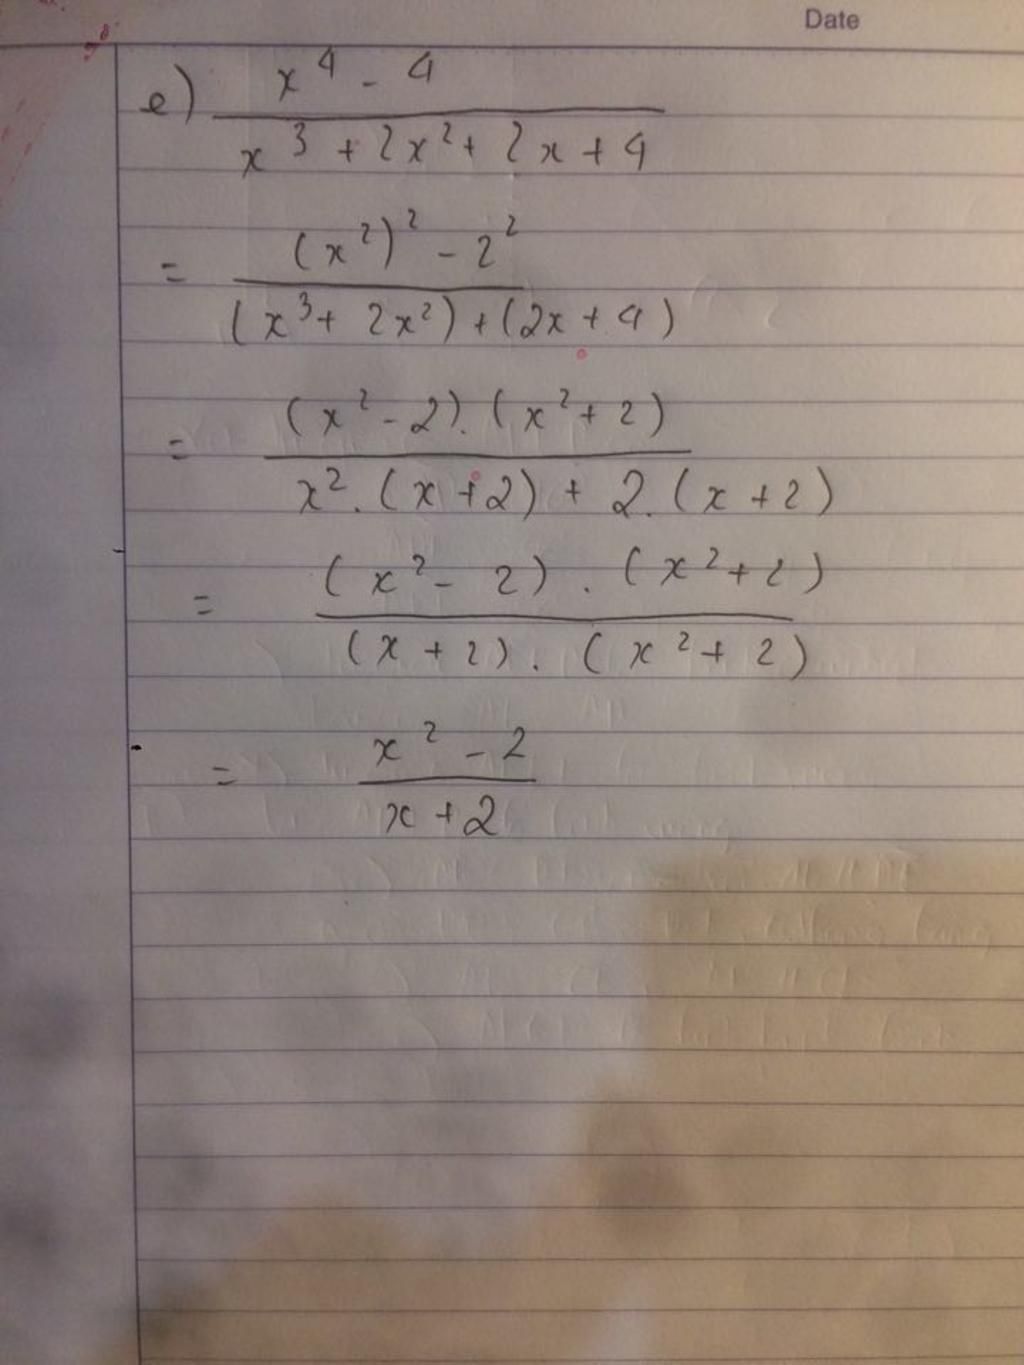 Date
e) x⁴ - 4
x³ + 2x² + 2x + 4
= (x²)² - 2²
(x³ + 2x²) + (2x + 4)
= (x² - 2). (x² + 2)
x². (x + 2) + 2. (x + 2)
= (x² - 2) . (x² + 2)
(x + 2) . (x² + 2)
= x² - 2
x + 2